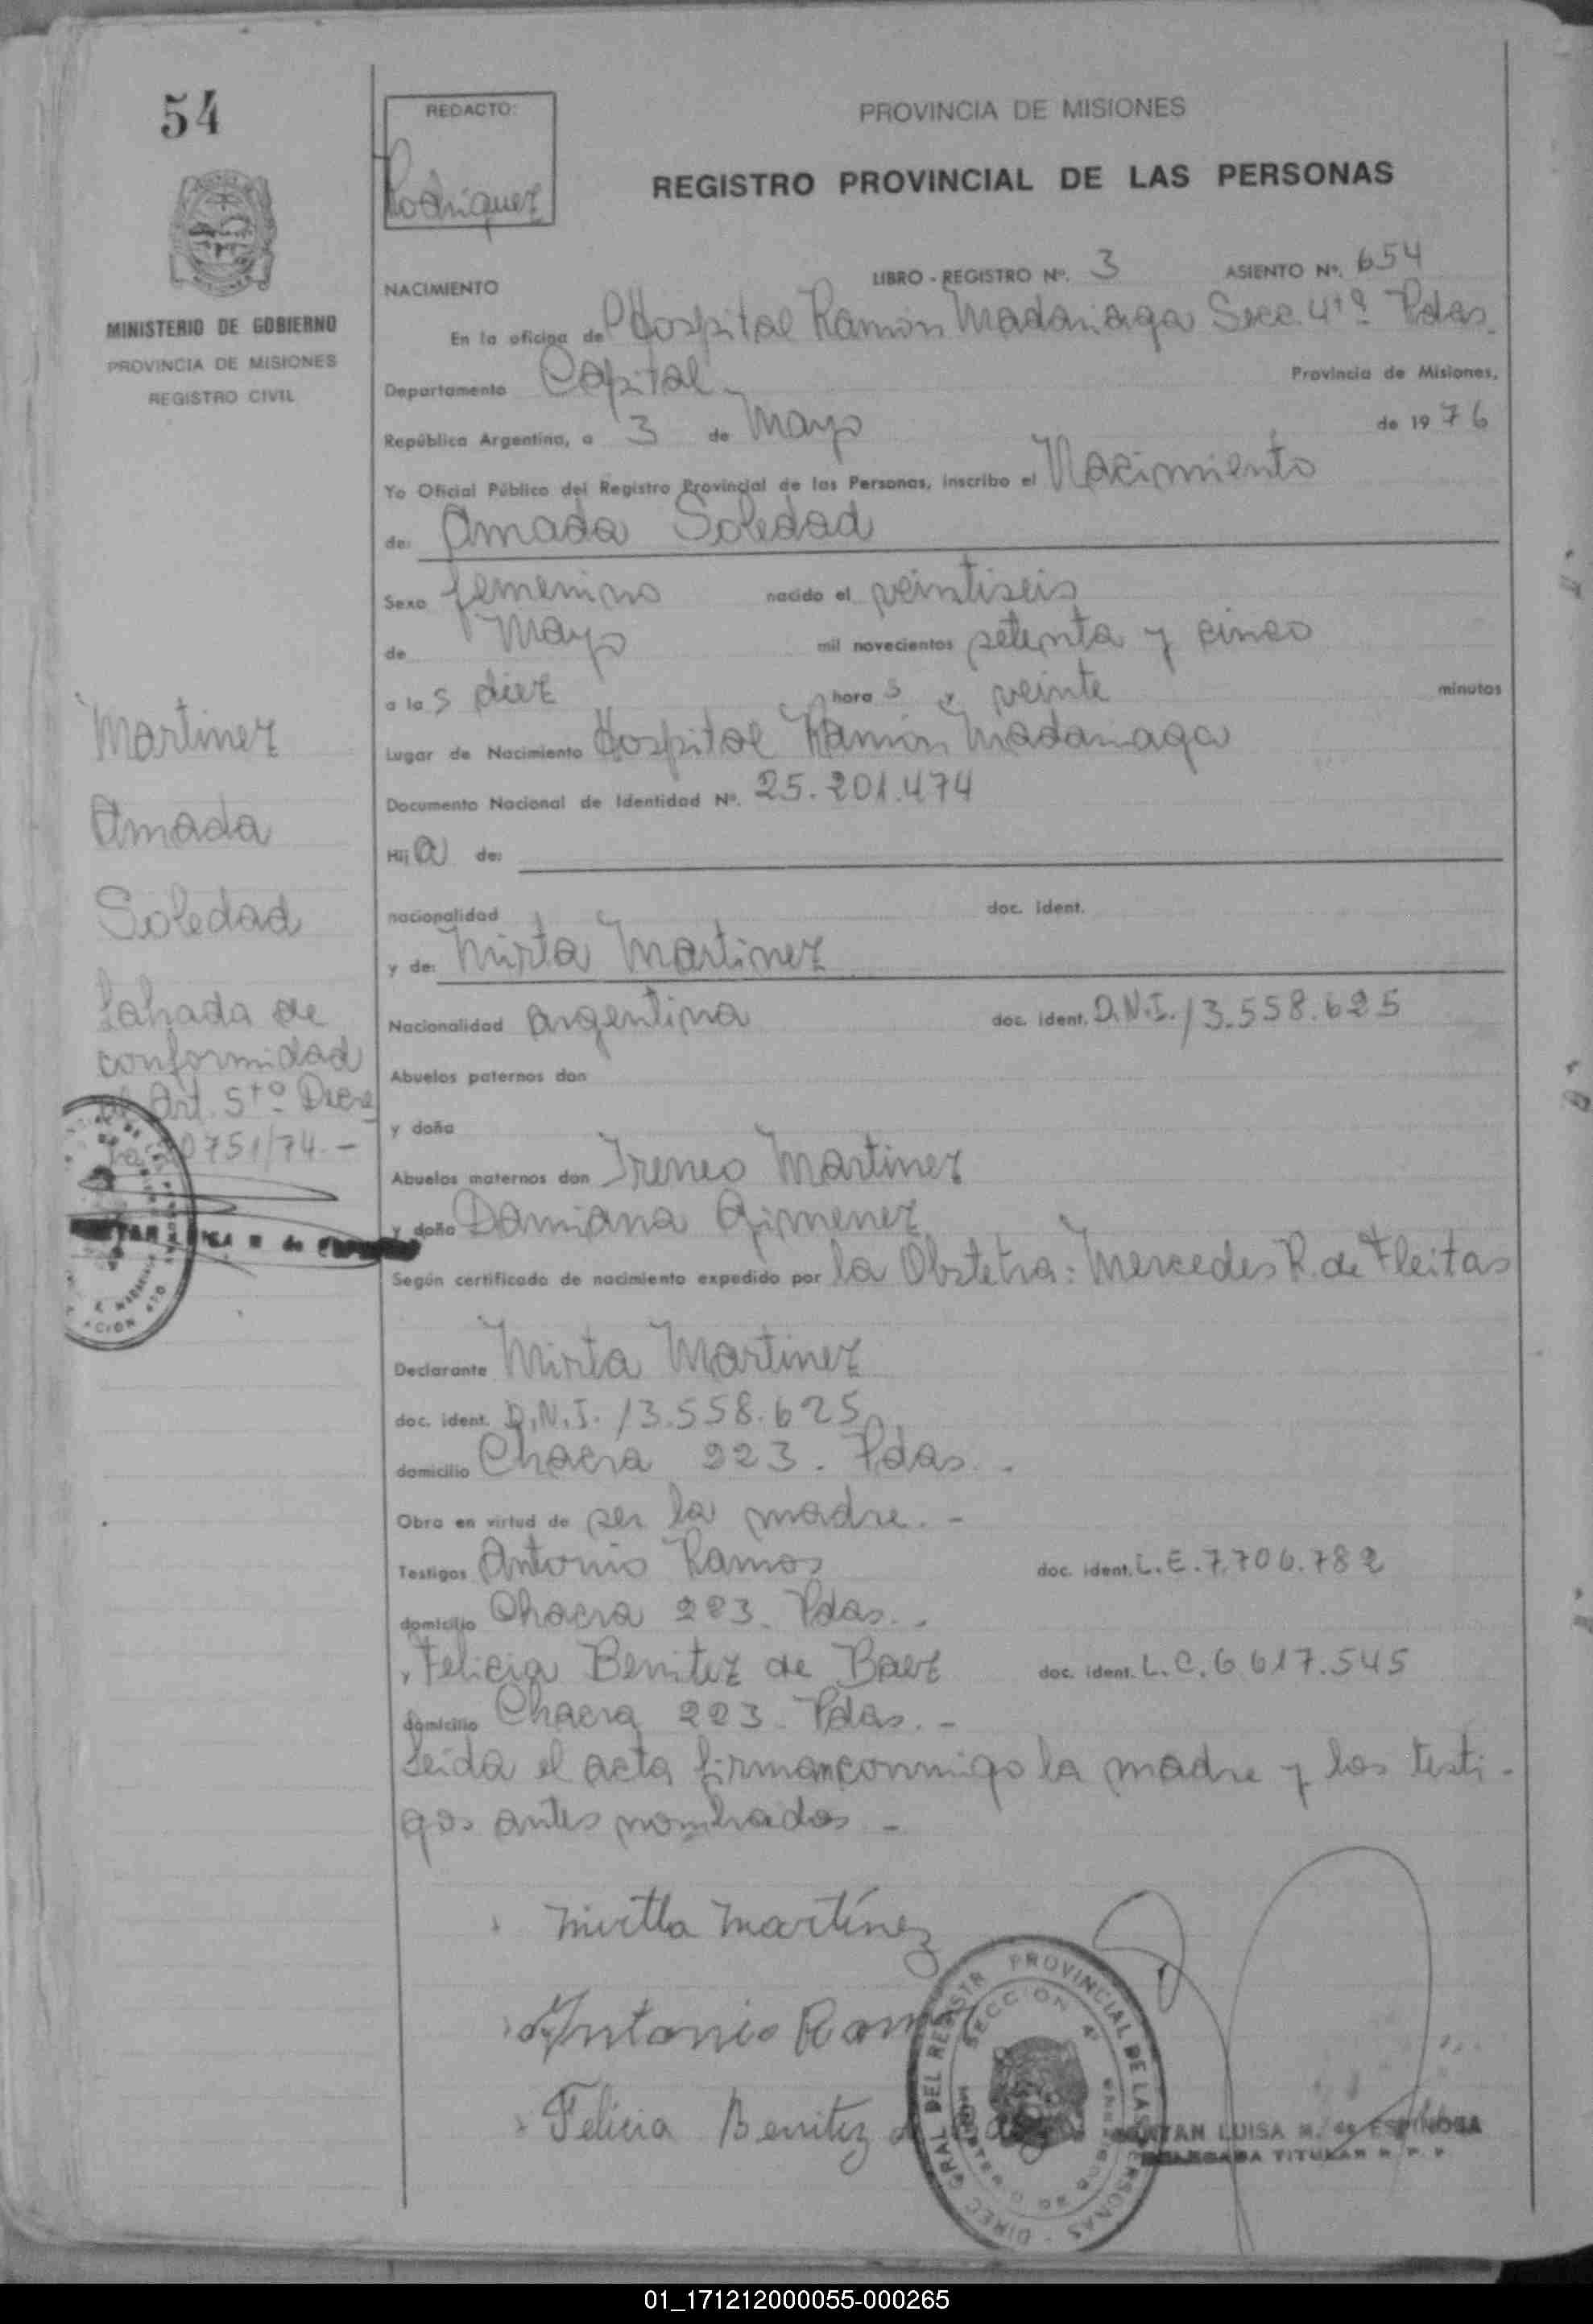 54
REDACTO:
Rodriguez
PROVINCIA DE MISIONES
REGISTRO PROVINCIAL DE LAS PERSONAS
MINISTERIO DE GOBIERNO
PROVINCIA DE MISIONES
REGISTRO CIVIL
NACIMIENTO
LIBRO - REGISTRO Nº. 3 ASIENTO Nº. 654
En la oficina de Hospital Ramón Madariaga Secc. 4tª Pdas.
Departamento Capital Provincia de Misiones,
República Argentina, a 3 de Mayo de 1976
Yo Oficial Público del Registro Provincial de las Personas, inscribo el Nacimiento
de: Amada Soledad
Sexo femenino nacido el veintiseis
de Mayo mil novecientos setenta y cinco
a las diez horas y veinte minutos
Lugar de Nacimiento Hospital Ramón Madariaga
Documento Nacional de Identidad Nº. 25.201.474
Hija de:
nacionalidad doc. ident.
y de: Mirta Martinez
Nacionalidad argentina doc. ident. D.N.I. 13.558.625
Abuelos paternos don
y doña
Abuelos maternos don Ireneo Martinez
y doña Damiana Gimenez
Según certificado de nacimiento expedido por la Obstetra: Mercedes R. de Fleitas
Declarante Mirta Martinez
doc. ident. D.N.I. 13.558.625
domicilio Chacra 223. Pdas.
Obra en virtud de ser la madre. -
Testigos Antonio Ramos doc. ident. L.E. 7.706.782
domicilio Chacra 223. Pdas.
, Felicia Benitez de Baez doc. ident. L.C. 6.617.545
domicilio Chacra 223. Pdas. -
Leida el acta firman conmigo la madre y los testi-
gos antes nombrados -
Martinez
Amada
Soledad
Labrada de
conformidad
al Art. 5tº Decre
751/74. -
Mirtha Martínez
Antonio Ramos
Felicia Benitez
DIREC. GRAL DEL REGISTR PROVINCIAL DE LAS PERSONAS
SECCION 4ª
LUISA M. de ESPINOSA
DELEGADA TITULAR R. P. P.
01_171212000055-000265